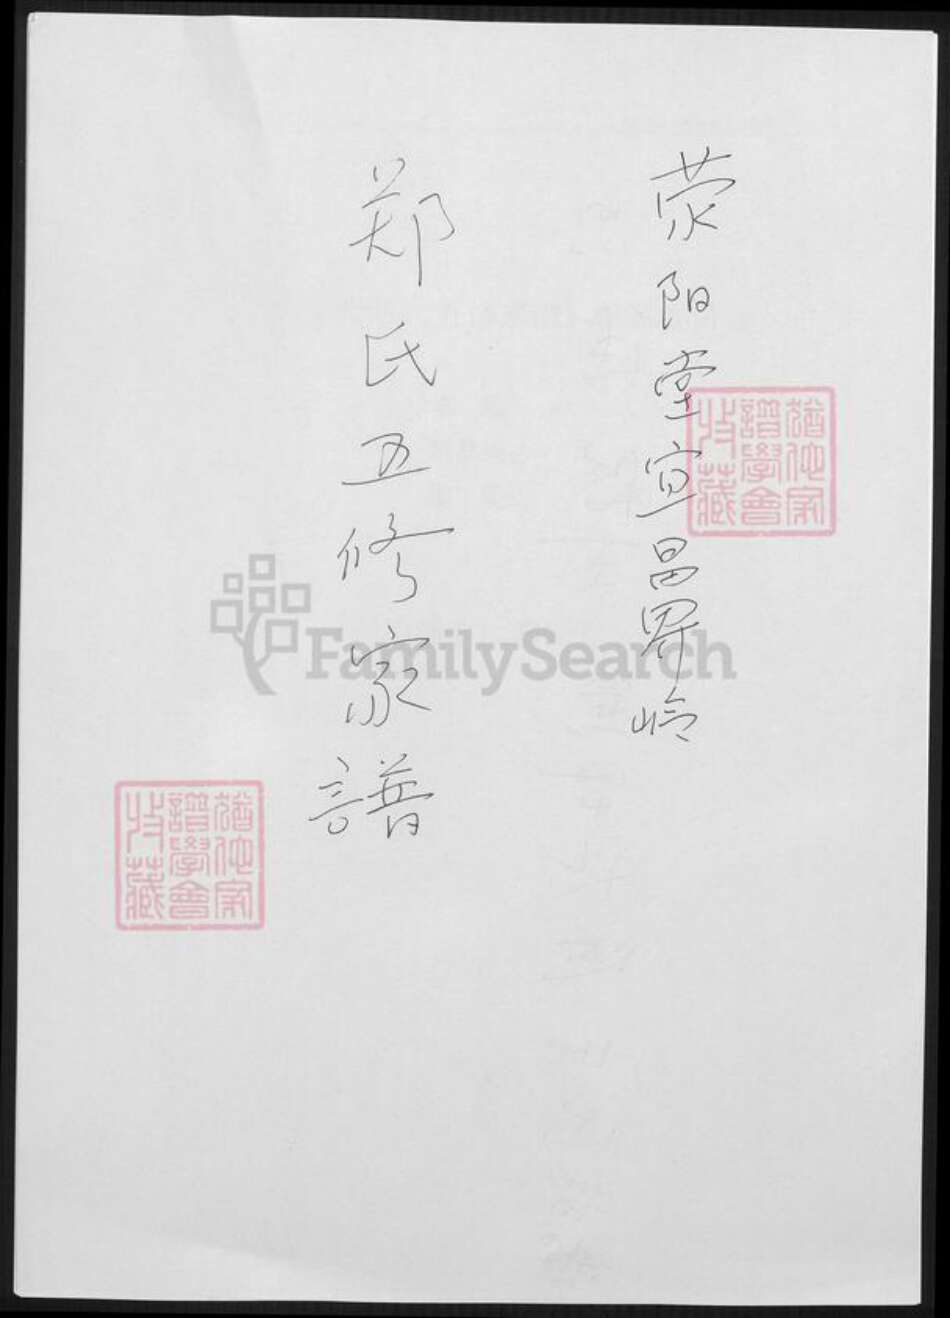 荥阳堂宣昌界岭
郑氏五修家譜
猶他家
譜學會
收藏
FamilySearch
猶他家
譜學會
收藏